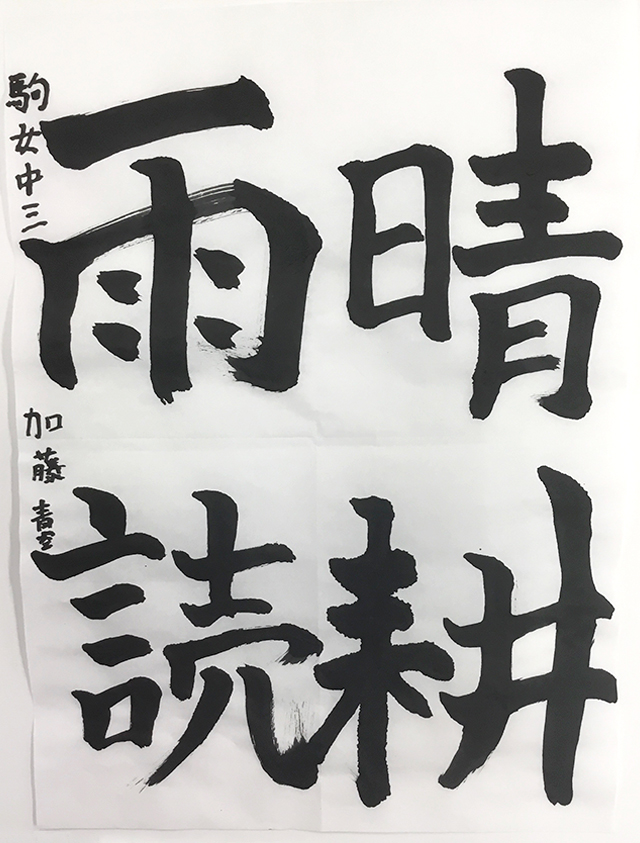 晴耕
雨読
駒女中三
加藤青空